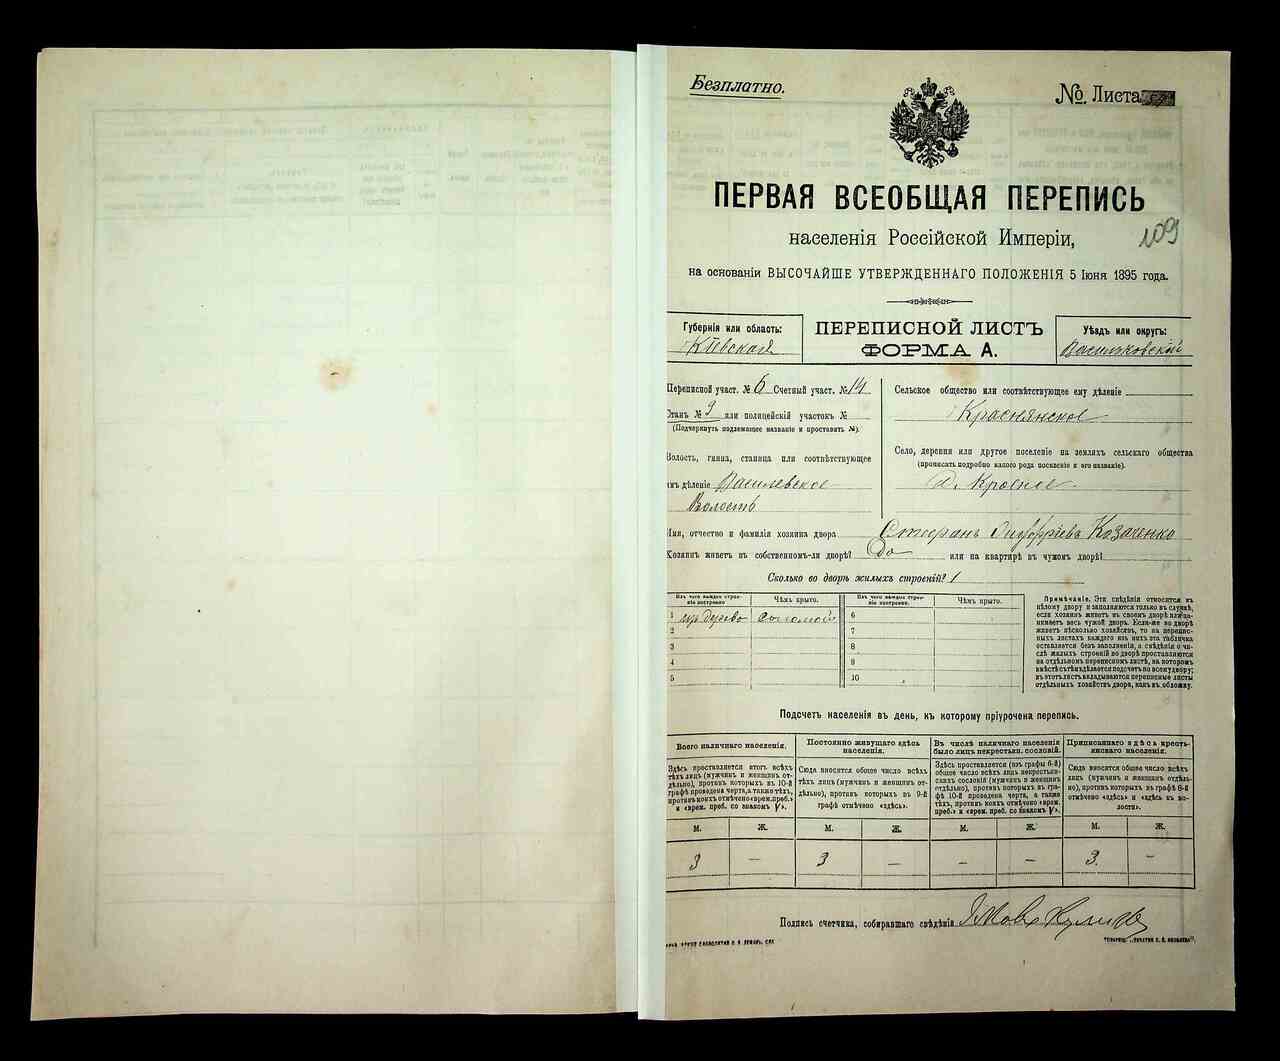 Безплатно.
№. Листа
ПЕРВАЯ ВСЕОБЩАЯ ПЕРЕПИСЬ
населенія Россійской Имперіи,
109
на основаніи ВЫСОЧАЙШЕ УТВЕРЖДЕННАГО ПОЛОЖЕНІЯ 5 Іюня 1895 года.
Губернія или область:
Кіевская
ПЕРЕПИСНОЙ ЛИСТЪ
ФОРМА А.
Уѣздъ или округъ:
Васильковскій
Переписной участ. № 6 Счетный участ. № 14
Станъ № 9 или полицейскій участокъ №
(Подчеркнуть подлежащее названіе и проставить №).
Волость, гмина, станица или соотвѣтствующее
имъ дѣленіе Василевское
Волость
Сельское общество или соотвѣтствующее ему дѣленіе
Краснянское
Село, деревня или другое поселеніе на земляхъ сельскаго общества
(прописать подробно какого рода поселеніе и его названіе).
д. Красное
Имя, отчество и фамилія хозяина двора Казаченко
Хозяинъ живетъ въ собственномъ-ли дворѣ? Да или на квартирѣ въ чужомъ дворѣ?
Сколько во дворѣ жилыхъ строеній? 1
Изъ чего каждое строеніе построено
Чѣмъ крыто.
Изъ чего каждое строеніе построено.
Чѣмъ крыто.
1 изъ дерева соломой 6
2 7
3 8
4 9
5 10
Примѣчаніе. Эти свѣдѣнія относятся къ
цѣлому двору и заполняются только въ случаѣ,
если хозяинъ живетъ въ своемъ дворѣ или занимаетъ весь чужой дворъ. Если-же во дворѣ
живетъ нѣсколько хозяйствъ, то на переписныхъ листахъ каждаго изъ нихъ эта табличка
оставляется безъ заполненія, а свѣдѣнія о числѣ жилыхъ строеній во дворѣ проставляются
на отдѣльномъ переписномъ листѣ, на которомъ
вмѣстѣ съ тѣмъ дѣлается подсчетъ по всему двору;
въ этотъ листъ вкладываются переписные листы
отдѣльныхъ хозяйствъ двора, какъ въ обложку.
Подсчетъ населенія въ день, къ которому пріурочена перепись.
Всего наличнаго населенія.
Постоянно живущаго здѣсь населенія.
Въ числѣ наличнаго населенія было лицъ некрестьян. сословій.
Приписаннаго здѣсь крестьянскаго населенія.
Здѣсь проставляется итогъ всѣхъ тѣхъ лицъ (мужчинъ и женщинъ отдѣльно), противъ которыхъ въ 10-й графѣ проведена черта, а также тѣхъ, противъ коихъ отмѣчено «врем. преб.» и «врем. преб. со знакомъ V».
Сюда вносится общее число всѣхъ тѣхъ лицъ (мужчинъ и женщинъ отдѣльно), противъ которыхъ въ 9-й графѣ отмѣчено «здѣсь».
Здѣсь проставляется (изъ графы 6-й) общее число всѣхъ лицъ некрестьянскихъ сословій (мужчинъ и женщинъ отдѣльно), противъ которыхъ въ графѣ 10-й проведена черта, а также тѣхъ, противъ коихъ отмѣчено «врем. преб.» и «врем. преб. со знакомъ V».
Сюда вносится общее число всѣхъ лицъ (мужчинъ и женщинъ отдѣльно), противъ которыхъ въ графѣ 8-й отмѣчено «здѣсь» и «здѣсь къ волости».
М. Ж. М. Ж. М. Ж. М. Ж.
3 — 3 — — — 3. —
Подпись счетчика, собиравшаго свѣдѣнія